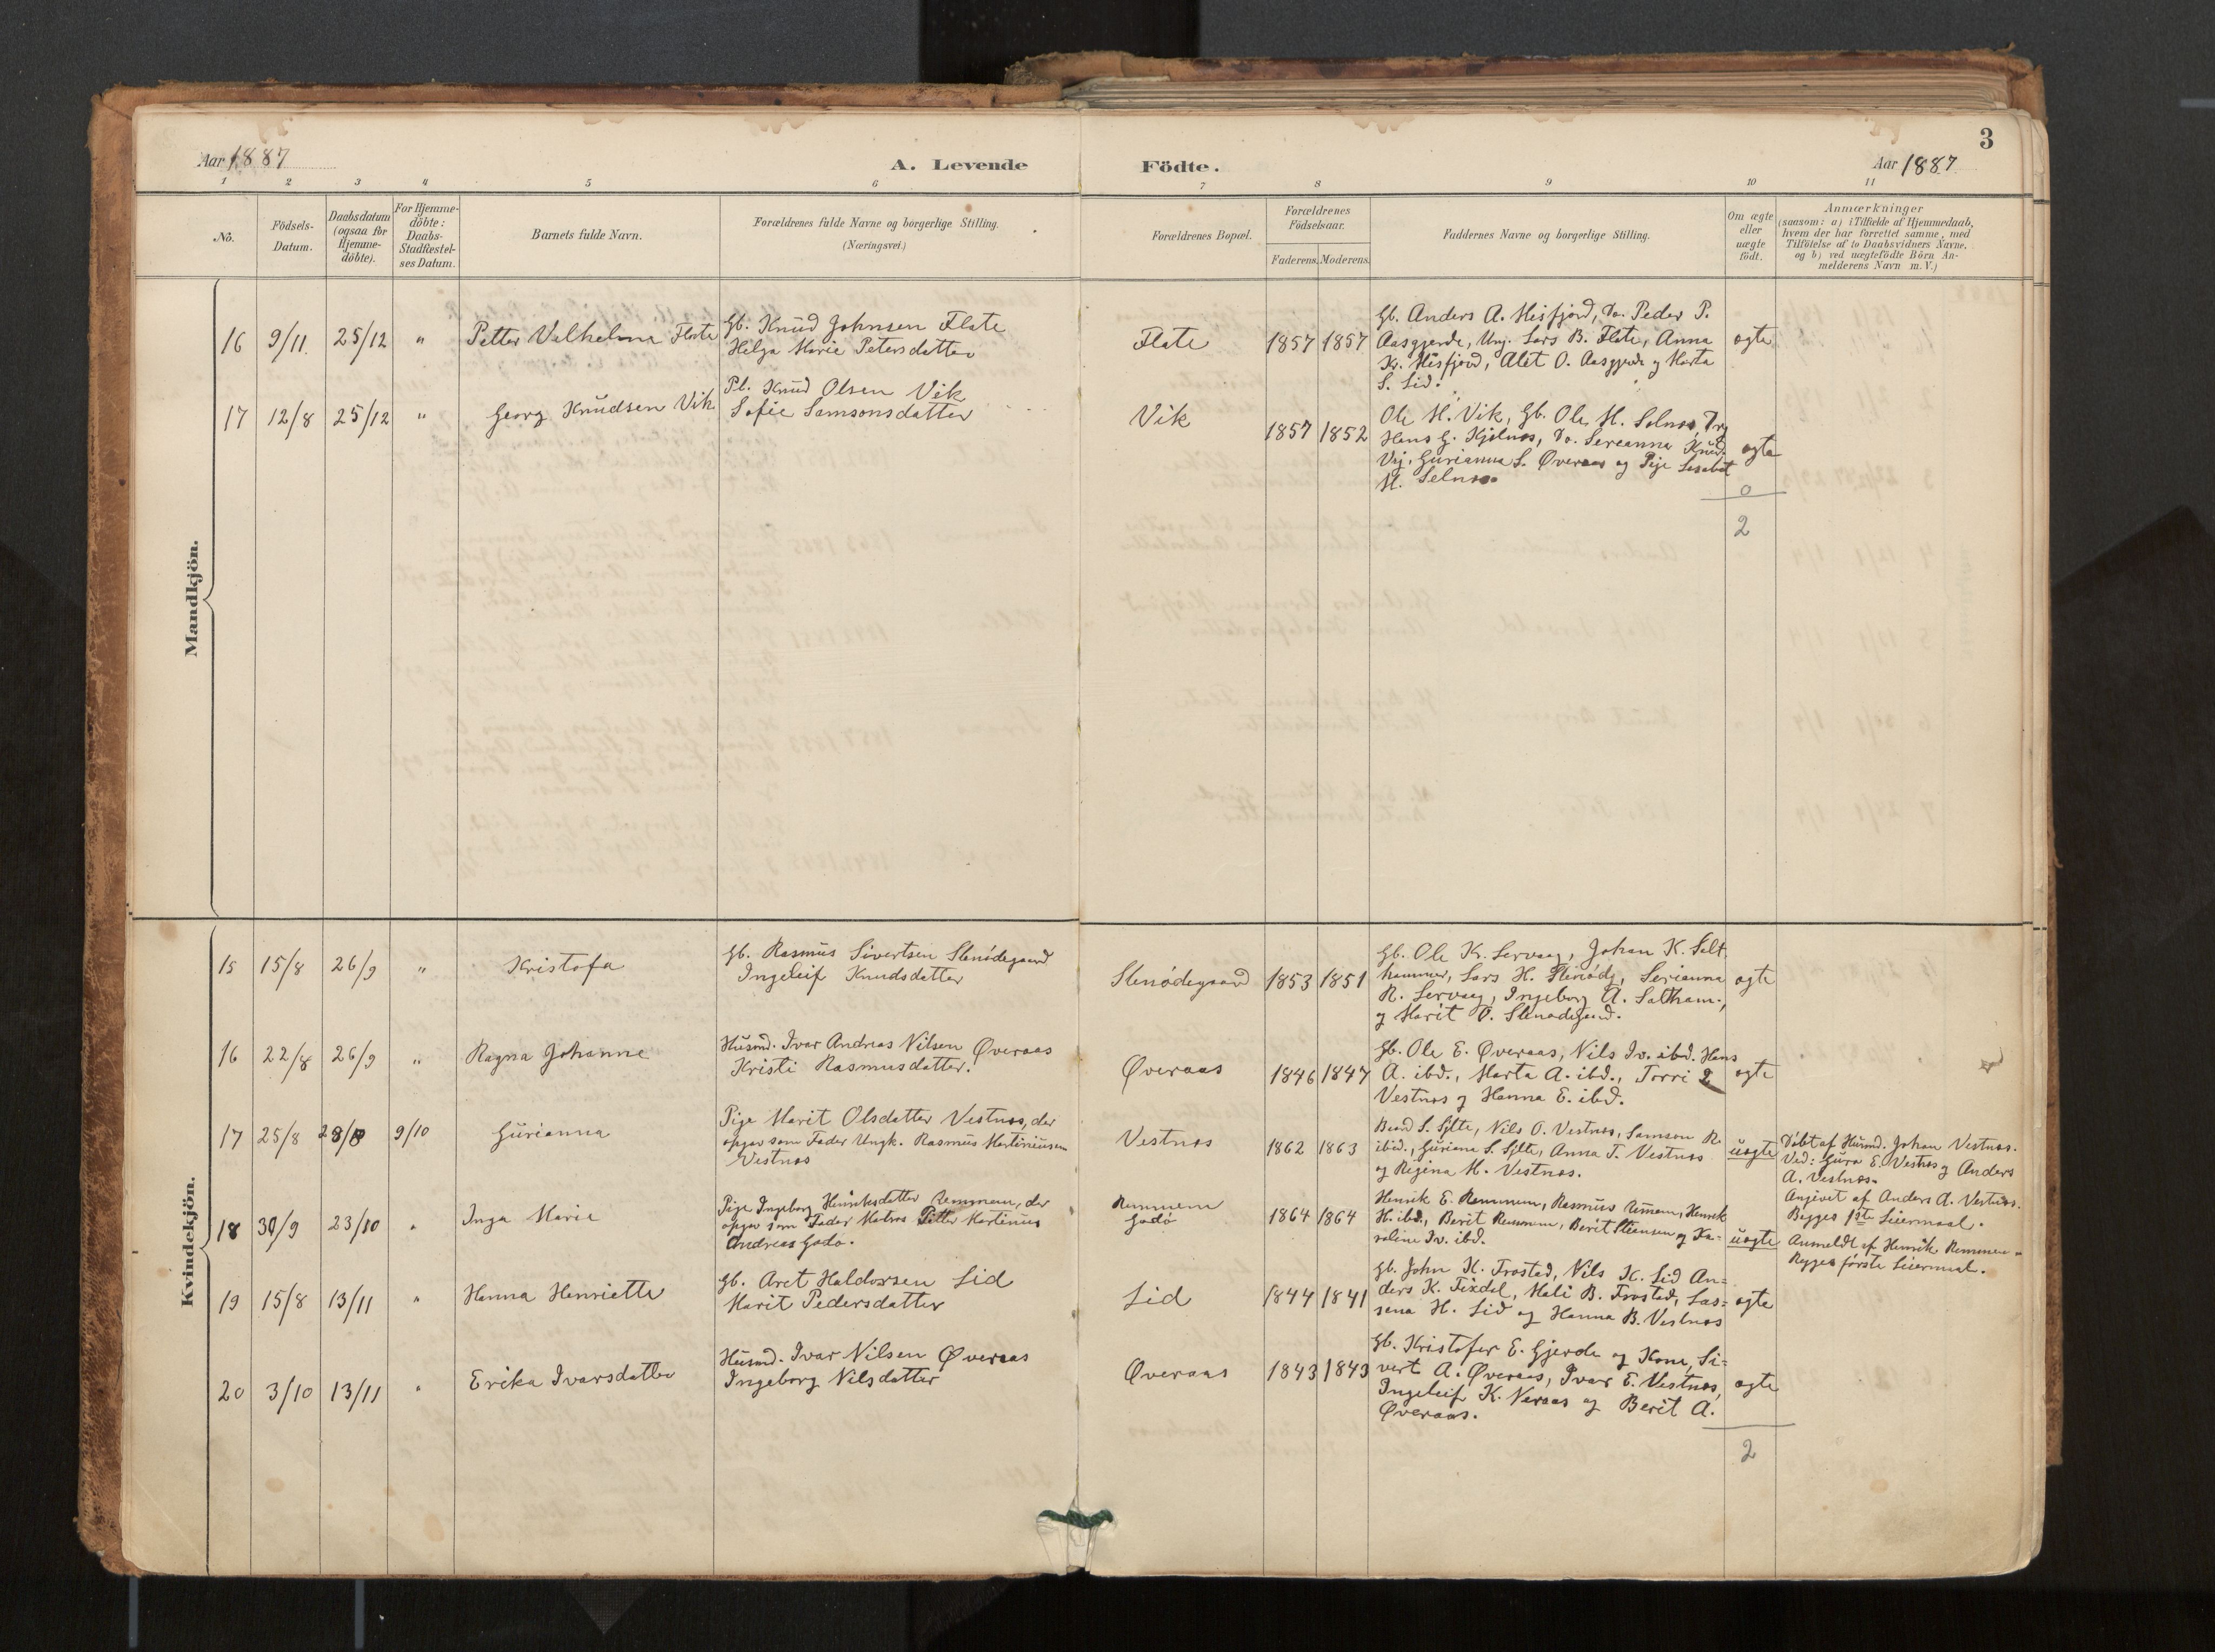 3
Aar 1887
A. Levende
Födte.
Aar 1887
1 2 3 4 5 6 7 8 9 10 11
No.
Födsels-
Datum.
Daabsdatum
(ogsaa for
Hjemme-
döbte).
For Hjemme-
döbte:
Daabs-
Stadfæstel-
ses Datum.
Barnets fulde Navn.
Forældrenes fulde Navne og borgerlige Stilling.
(Næringsvei.)
Forældrenes Bopæl.
Forældrenes
Födselsaar.
Faderens. Moderens.
Faddernes Navne og borgerlige Stilling.
Om ægte
eller
uægte
födt.
Anmærkninger
(saasom: a) i Tilfælde af Hjemmedaab,
hvem der har forrettet samme, med
Tilföielse af to Daabsvidners Navne,
og b) ved uægtefödte Börn An-
melderens Navn m. V.)
Mandkjön.
16 9/11. 25/12 " Petter Velhelma Flate
Gb. Knud Johnsen Flate
Helga Marie Petersdatter
Flate 1857 1857
Gb. Anders A. Misfjord, Do. Peder P.
Aasgjerde, Ung. Lars B. Flate, Anna
Kr. Misfjord, Alet O. Aasgjerde og Marta
S. Lid.
ægte
17 12/8 25/12 " Georg Knudsen Vik
Pl. Knud Olsen Vik
Sofie Samsonsdatter
Vik 1857 1852
Ole M. Vik, Gb. Ole M. Selnæs,
Hans G. Kjelnæs, Do. Sereanna Knud.
Vig, Gurianna S. Øveraas og Pige Lisabet
M. Selnæs.
ægte
0
2
Kvindekjön.
15 15/8 26/9 " Kristofa
Gb. Rasmus Sivertsen Stenödegaard
Ingeleif Knudsdatter
Stenödegaard 1853 1851
Gb. Ole K. Servaag, Johan K. Salt
hammer, Lars H. Stenödg, Serianna
R. Servaag, Ingeborg A. Saltham.,
og Marit O. Stenødegaard.
ægte
16 22/8 26/9 " Ragna Johanne
Husmd. Ivar Andreas Nilsen Øveraas
Kristi Rasmusdatter.
Øveraas 1846 1847
Gb. Ole E. Øveraas, Nils Iv. ibd. Hans
A. ibd., Marta A. ibd., Torri
Vestnæs og Hanna E. ibd.
ægte
17 25/8 28/8 9/10 Gurianna
Pige Marit Olsdatter Vestnæs, der
opgav som Fader Ungk. Rasmus Martiniusen
Vestnæs
Vestnæs 1862 1863
S. Sylte, Nils O. Vestnæs, Samson R.
ibid., Guriana S. Sylte, Anna T. Vestnæs
og Regina M. Vestnæs.
uægte
Döbt af Husmd. Johan Vestnæs.
Ved: Guro E. Vestnæs og Anders
A. Vestnæs.
Angivet af Anders A. Vestnæs.
Begges 1ste Leiermaal.
18 30/9 23/10 " Inga Marie
Pige Ingeborg Henriksdatter Remmem, der
opgav som Fader Matros Petter Martinus
Andreas Godø.
Remmem
Godø
1864 1864
Henrik E. Remmem, Rasmus Remem, Henrik
H. ibd., Berit Remmem, Berit Steensen og Ka-
roline Iv. ibd.
uægte
Anmeldt af Henrik Remmem
Begges første Leiermaal.
19 15/8 13/11 " Hanna Henriette
Gb. Aret Haldorsen Lid
Marit Pedersdatter
Lid 1844 1841
Gb. John K. Frostad, Nils K. Lid An=
ders K. Fixdal, Mali B. Frostad, Las=
sena H. Lid og Hanna B. Vestnæs
ægte
20 3/10 13/11 " Erika Ivarsdatter
Husmd. Ivar Nilsen Øveraas
Ingeborg Nilsdatter
Øveraas 1843 1843
Gb. Kristofer E. Gjerde og Kone, Si=
vert A. Øveraas, Ivar E. Vestnæs,
Ingeleif K. Neraas og Berit A.
Øveraas.
ægte
2